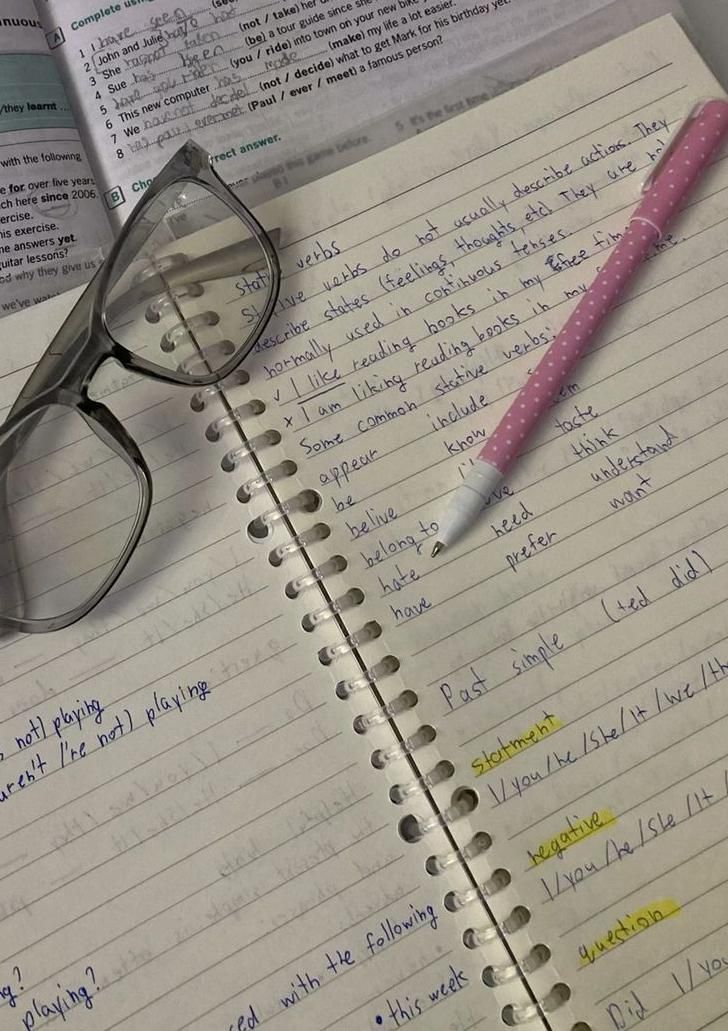 A Complete
1 I have seen
2 John and Julie
(not / take) her
3 She hasnot taken
(be) a tour guide since she
4 Sue has been
(you / ride) into town on your new bike
5 have you riden
(make) my life a lot easier.
6 This new computer has made
(not / decide) what to get Mark for his birthday yet.
7 We have not decided
8 has paul ever met (Paul / ever / meet) a famous person?
B
rect answer.
5 It's the first time
played this game before
/they learnt ...
with the following
e for over five years
ch here since 2006.
ercise.
his exercise.
ne answers yet.
uitar lessons?
and why they give us
we've
verbs
verbs do not usually describe action. They
describe states (feelings, thoughts, etc) They are not
normally used in continuous tenses.
✓ I like reading books in my free time
× I am liking reading books in my
Some common stative verbs:
appear include
be know taste
belive think
belong to need understand
hate prefer want
have
Past simple (ted did)
statment
I/you/he/she/It/we/th
negative
I/you/he/she/It/
question
Did I/you
not) playing
aren't /'re not) playing
playing?
with the following
• this week